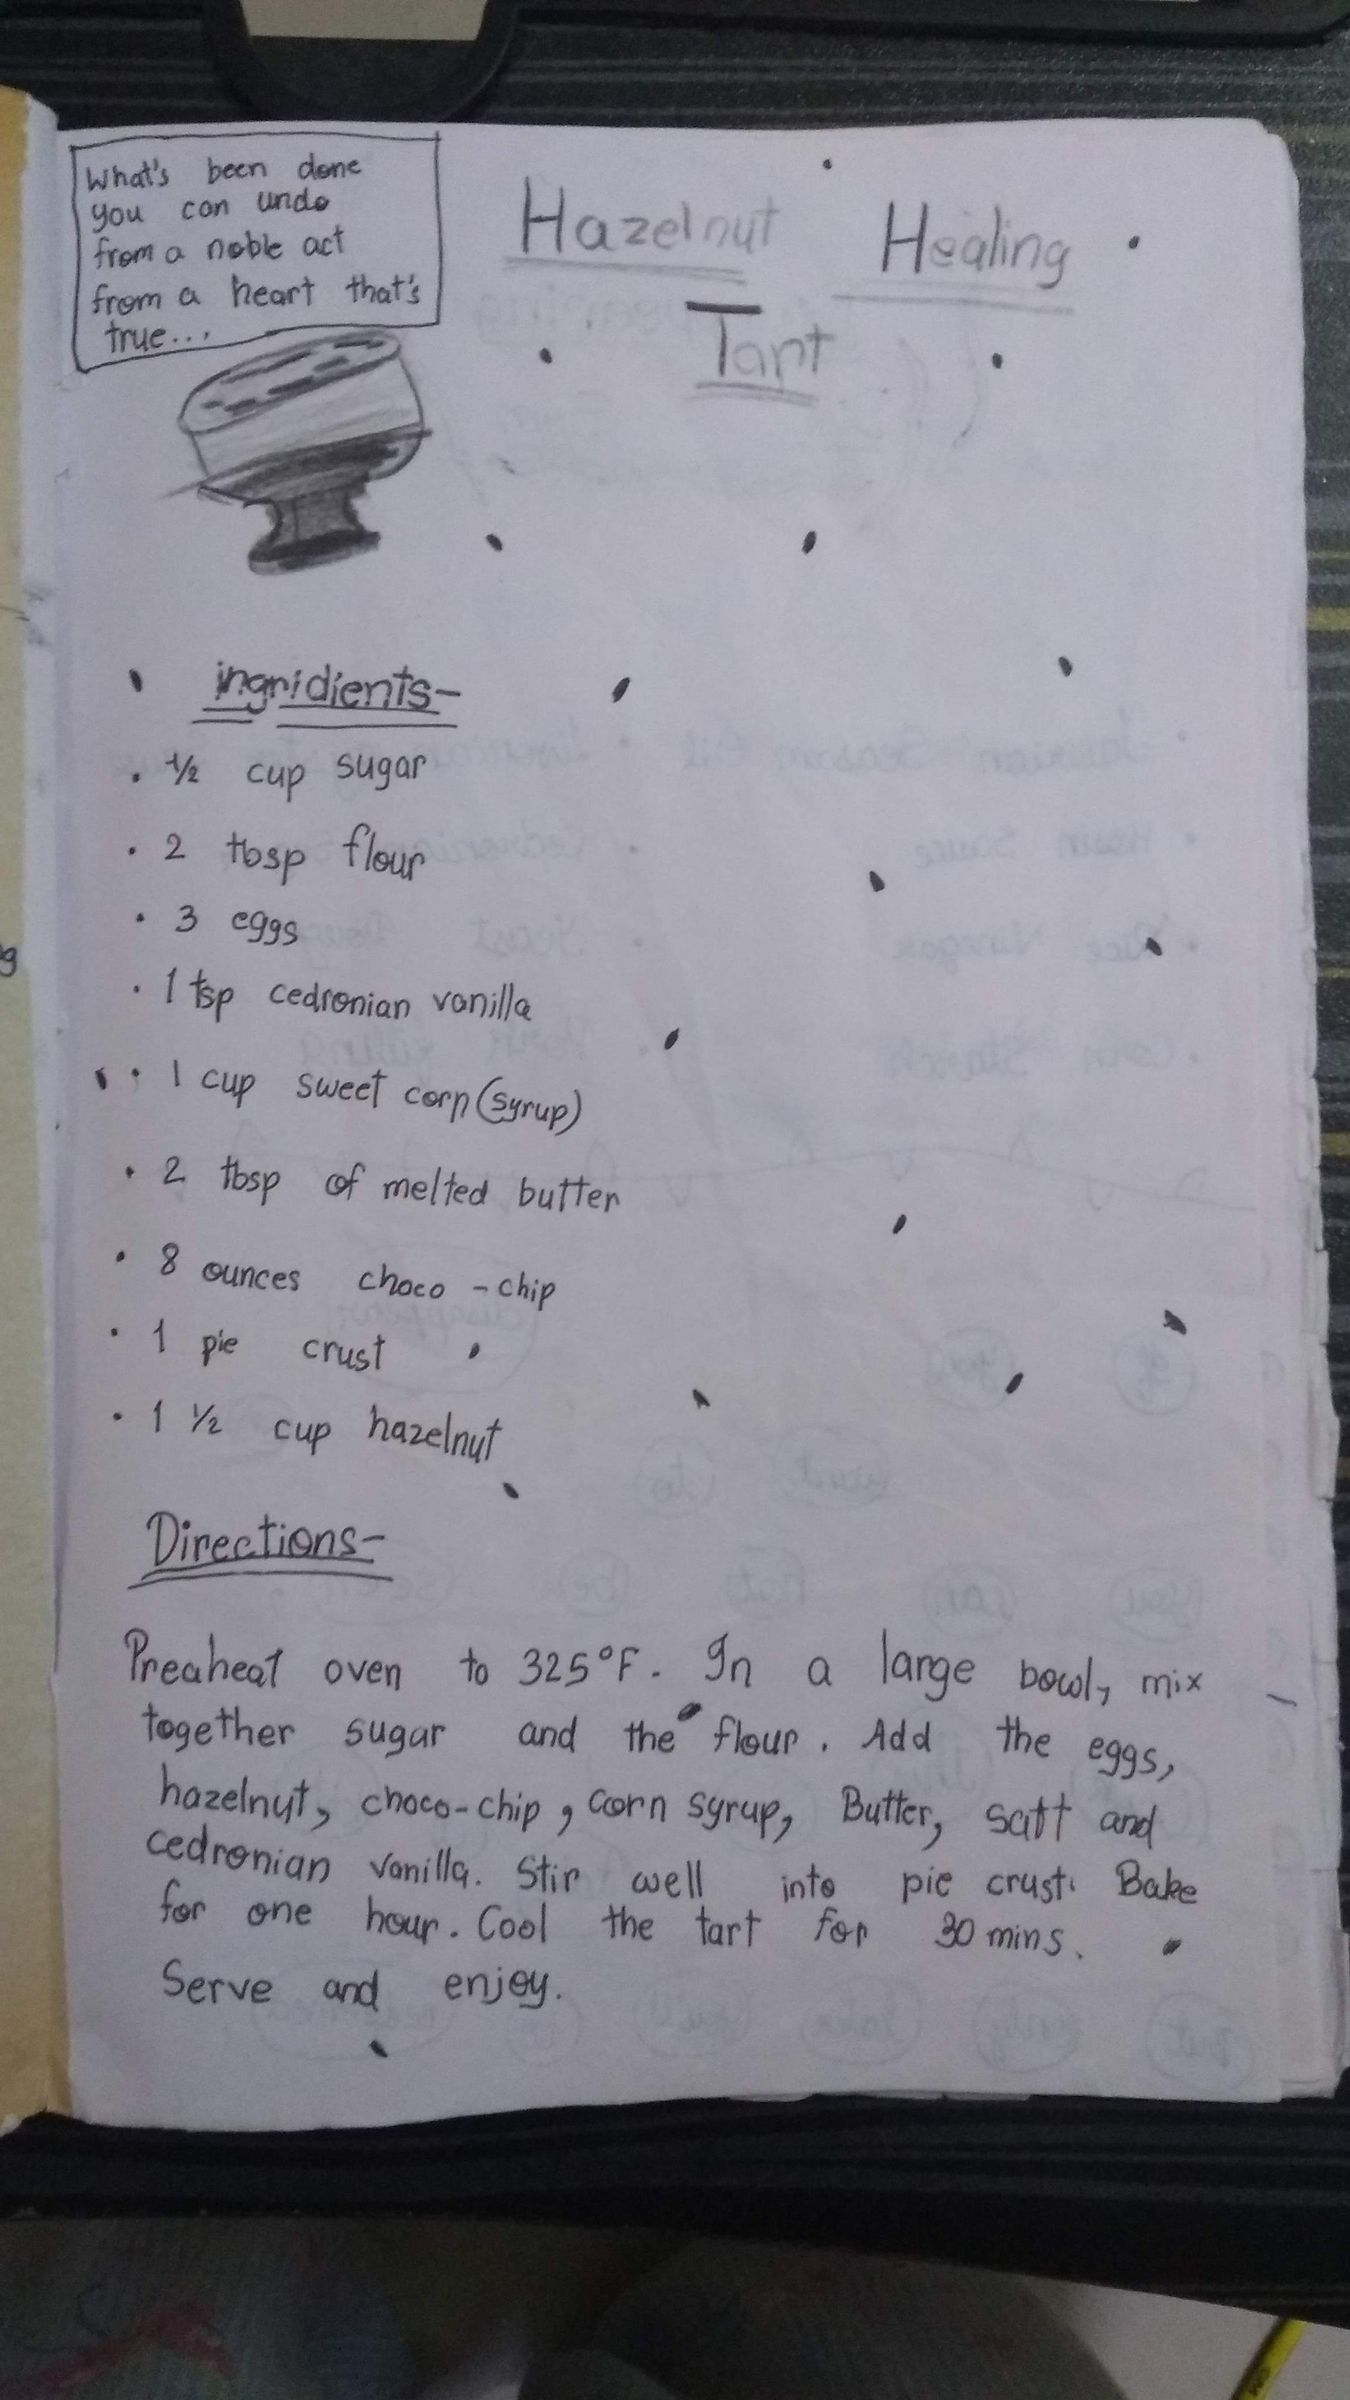 What's been done
you can undo
from a noble act
from a heart that's
true...
Hazelnut Healing
Tart
ingridients-
. 1/2 cup sugar
. 2 tbsp flour
. 3 eggs
. 1 tsp cedronian vanilla
. 1 cup sweet corn (syrup)
. 2 tbsp of melted butter
. 8 ounces choco-chip
. 1 pie crust
. 1 1/2 cup hazelnut
Directions-
Preaheat oven to 325°F. In a large bowl, mix
together sugar and the flour. Add the eggs,
hazelnut, choco-chip, corn syrup, Butter, satt and
cedronian vanilla. Stir well into pie crust. Bake
for one hour. Cool the tart for 30 mins.
Serve and enjoy.